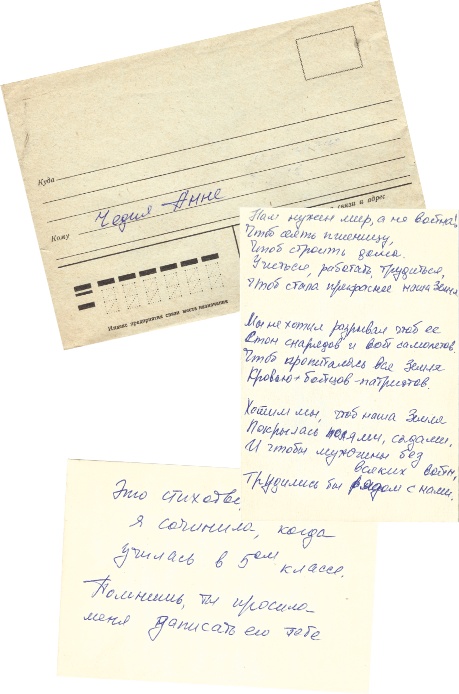 Куда
Кому Чедия Анне
связи и адрес
Индекс предприятия связи места назначения
Нам нужен мир, а не война!
Чтоб сеять пшеницу,
Чтоб строить дома.
Учиться, работать, трудиться,
Чтоб стала прекраснее наша Земля
Мы не хотим разрывал чтоб ее
Стон снарядов и вой самолетов.
Чтоб пропиталась вся Земля
Кровью бойцов-патриотов.
Хотим мы, чтоб наша Земля
Покрылась полями, садами,
И чтобы мужчины без
всяких войн,
Трудились бы рядом с нами.
Это стихотво
я сочинила, когда
училась в 5ом классе.
Помнишь, ты просила
меня записать его тебе